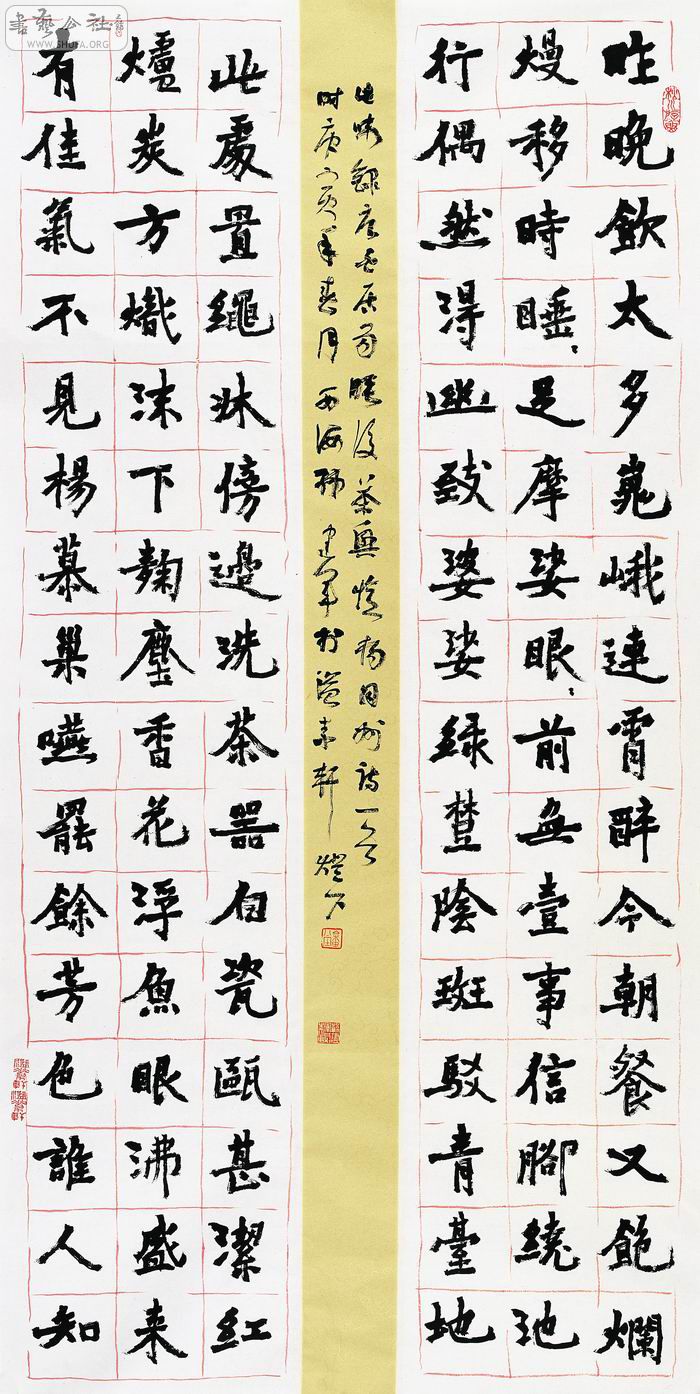 昨晚飲太多嵬峨連宵醉今朝餐又飽爛
熳移時睡〻足摩挲眼〻前無壹事信腳繞池
行偶然得幽致婆娑緑樹陰斑駁青臺地
此處置繩牀傍邊洗茶器白瓷甌甚潔紅
爐炭方熾沫下麴塵香花浮魚眼沸盛来
有佳氣不見楊慕巢嚥罷餘芳色誰人知
此味錄唐白居易睡後茶興憶楊同州詩一首
时庚寅年春月西海建军於溢素軒燈下
書藝公社
WWW.SHUFA.ORG